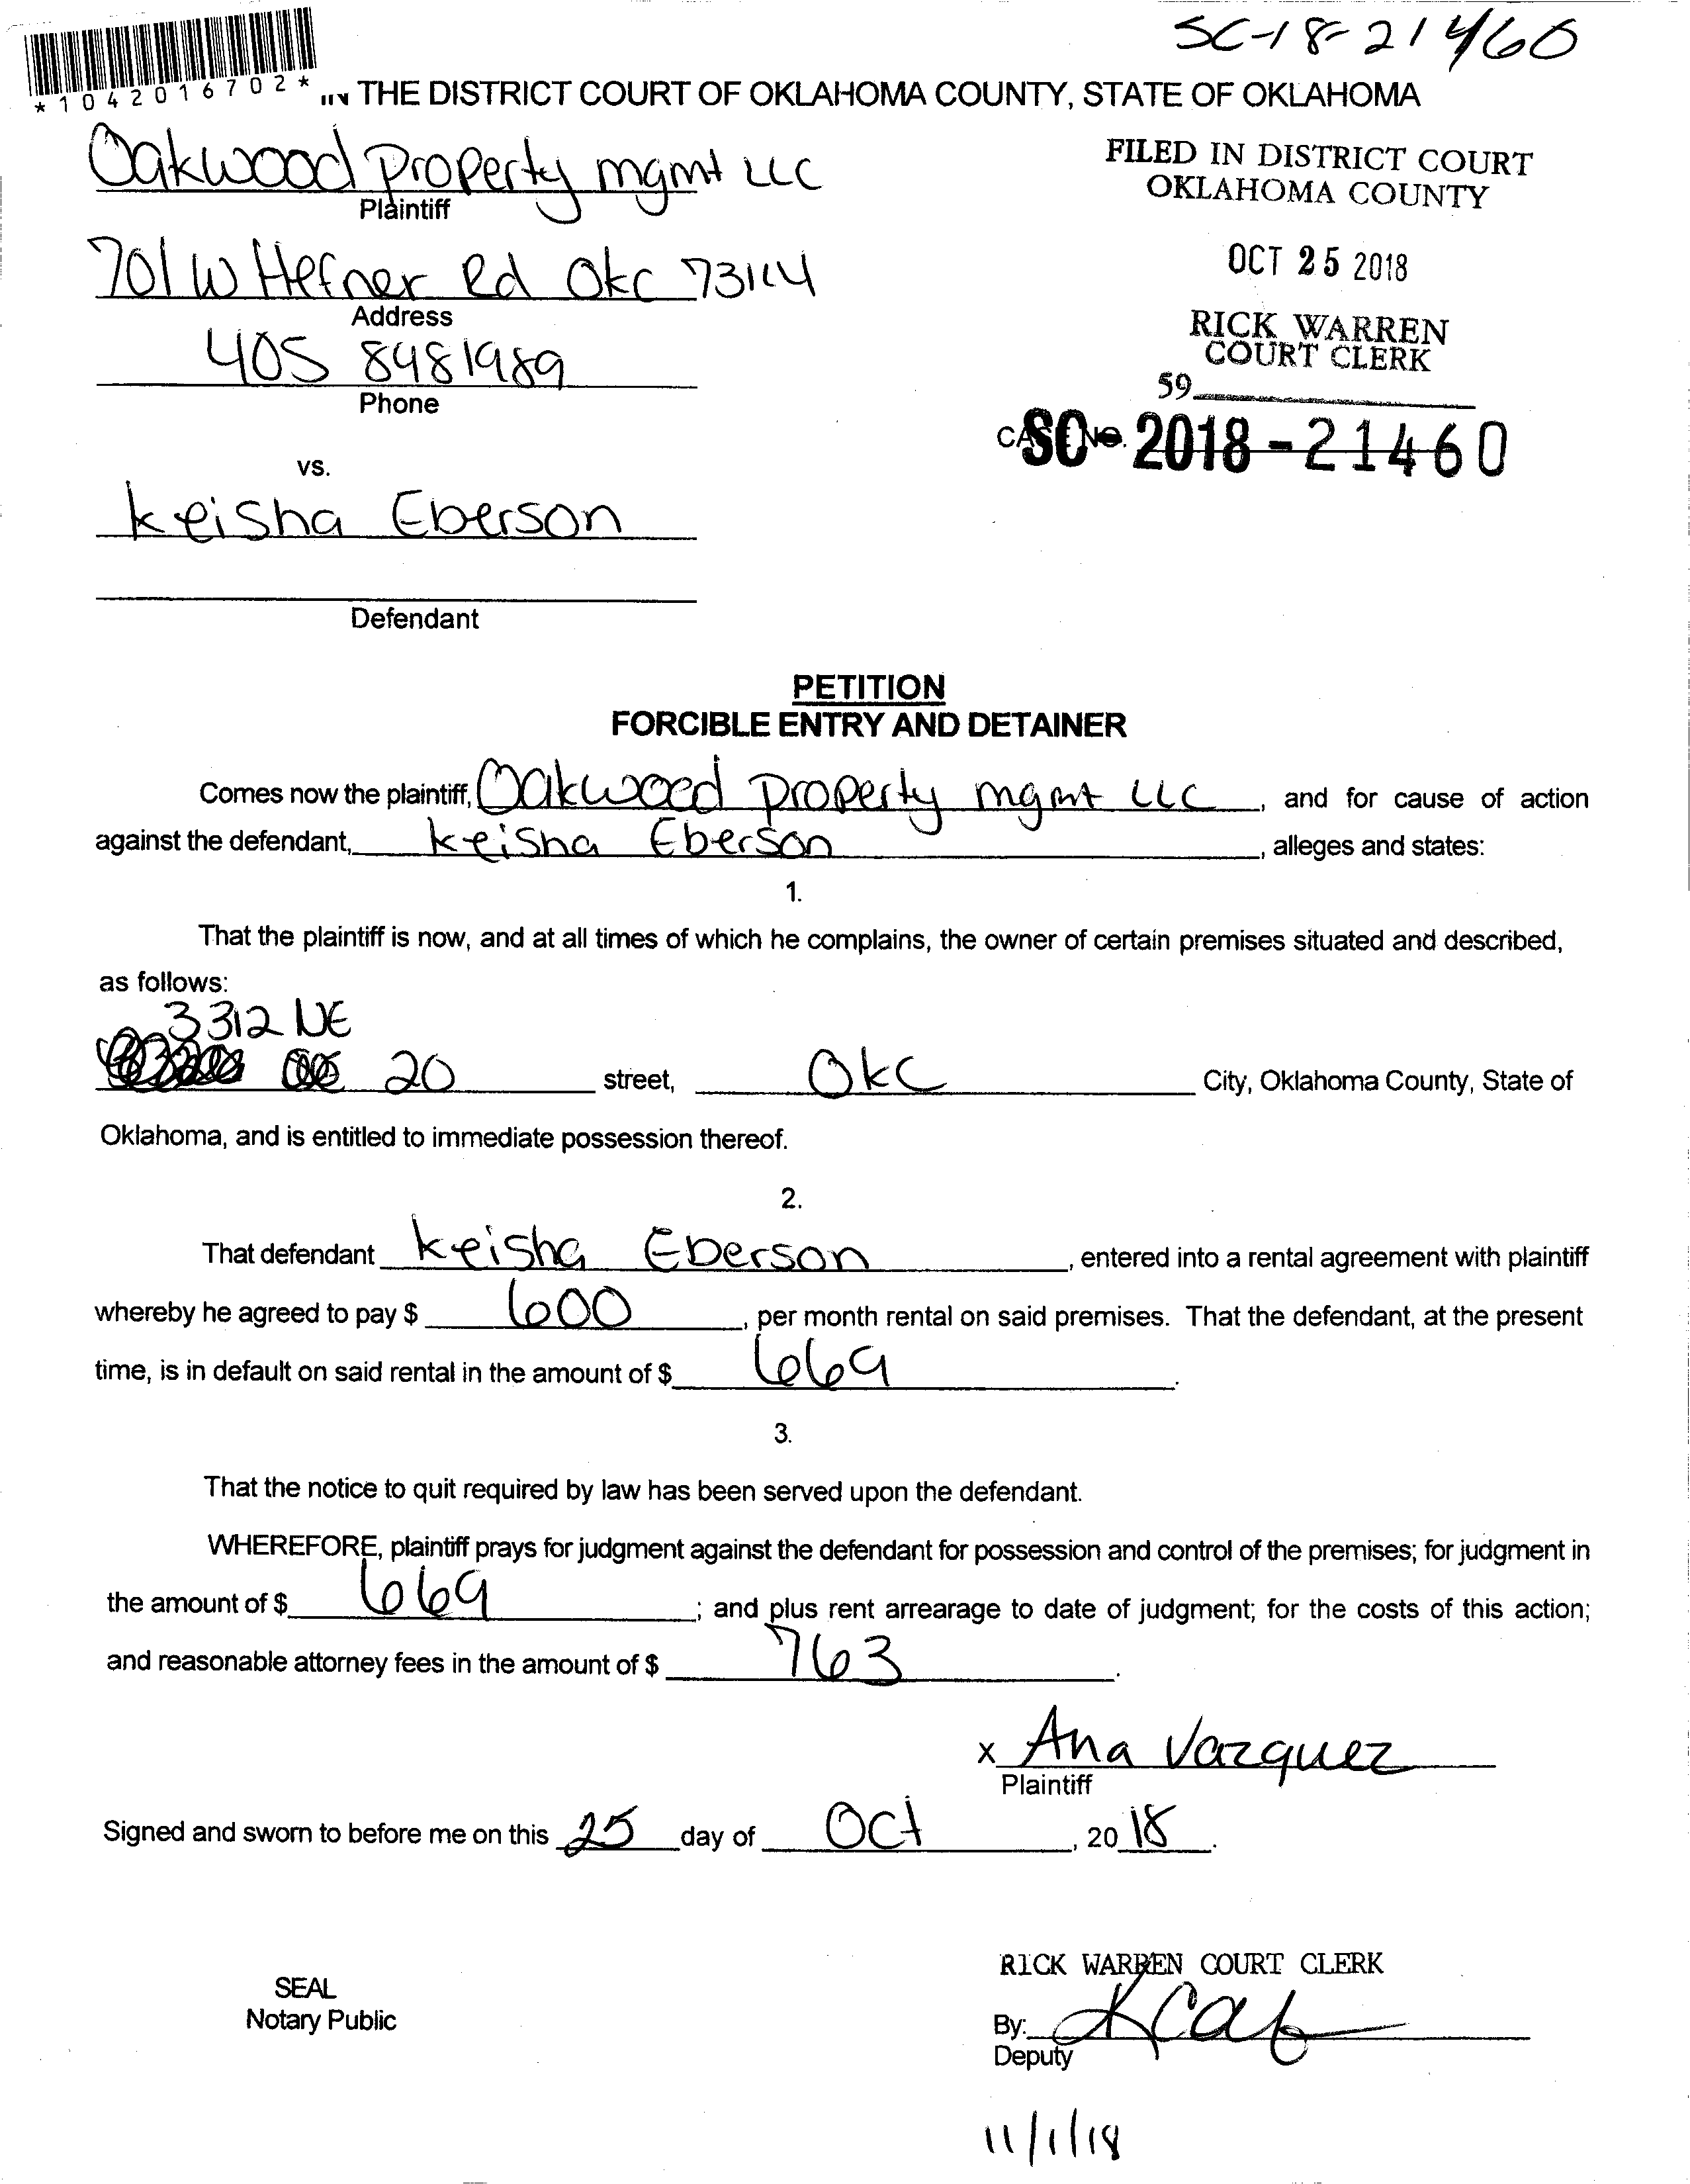 SC-18-21460
*1042016702*
IN THE DISTRICT COURT OF OKLAHOMA COUNTY, STATE OF OKLAHOMA
Oakwood Property mgmt LLC
Plaintiff
FILED IN DISTRICT COURT
OKLAHOMA COUNTY
701 W Hefner Rd Okc 73114
Address
OCT 25 2018
405 8481989
Phone
RICK WARREN
COURT CLERK
59
CASE NO. SC-2018-21460
vs.
Keisha Eberson
Defendant
PETITION
FORCIBLE ENTRY AND DETAINER
Comes now the plaintiff, Oakwood Property mgmt LLC, and for cause of action
against the defendant, Keisha Eberson, alleges and states:
1.
That the plaintiff is now, and at all times of which he complains, the owner of certain premises situated and described,
as follows:
3312 NE
20 street, OKC City, Oklahoma County, State of
Oklahoma, and is entitled to immediate possession thereof.
2.
That defendant Keisha Eberson, entered into a rental agreement with plaintiff
whereby he agreed to pay $ 600, per month rental on said premises. That the defendant, at the present
time, is in default on said rental in the amount of $ 669.
3.
That the notice to quit required by law has been served upon the defendant.
WHEREFORE, plaintiff prays for judgment against the defendant for possession and control of the premises; for judgment in
the amount of $ 669; and plus rent arrearage to date of judgment; for the costs of this action;
and reasonable attorney fees in the amount of $ 763.
x Ana Vazquez
Plaintiff
Signed and sworn to before me on this 25 day of Oct, 20 18.
SEAL
Notary Public
RICK WARREN COURT CLERK
By:
Deputy
11/1/18